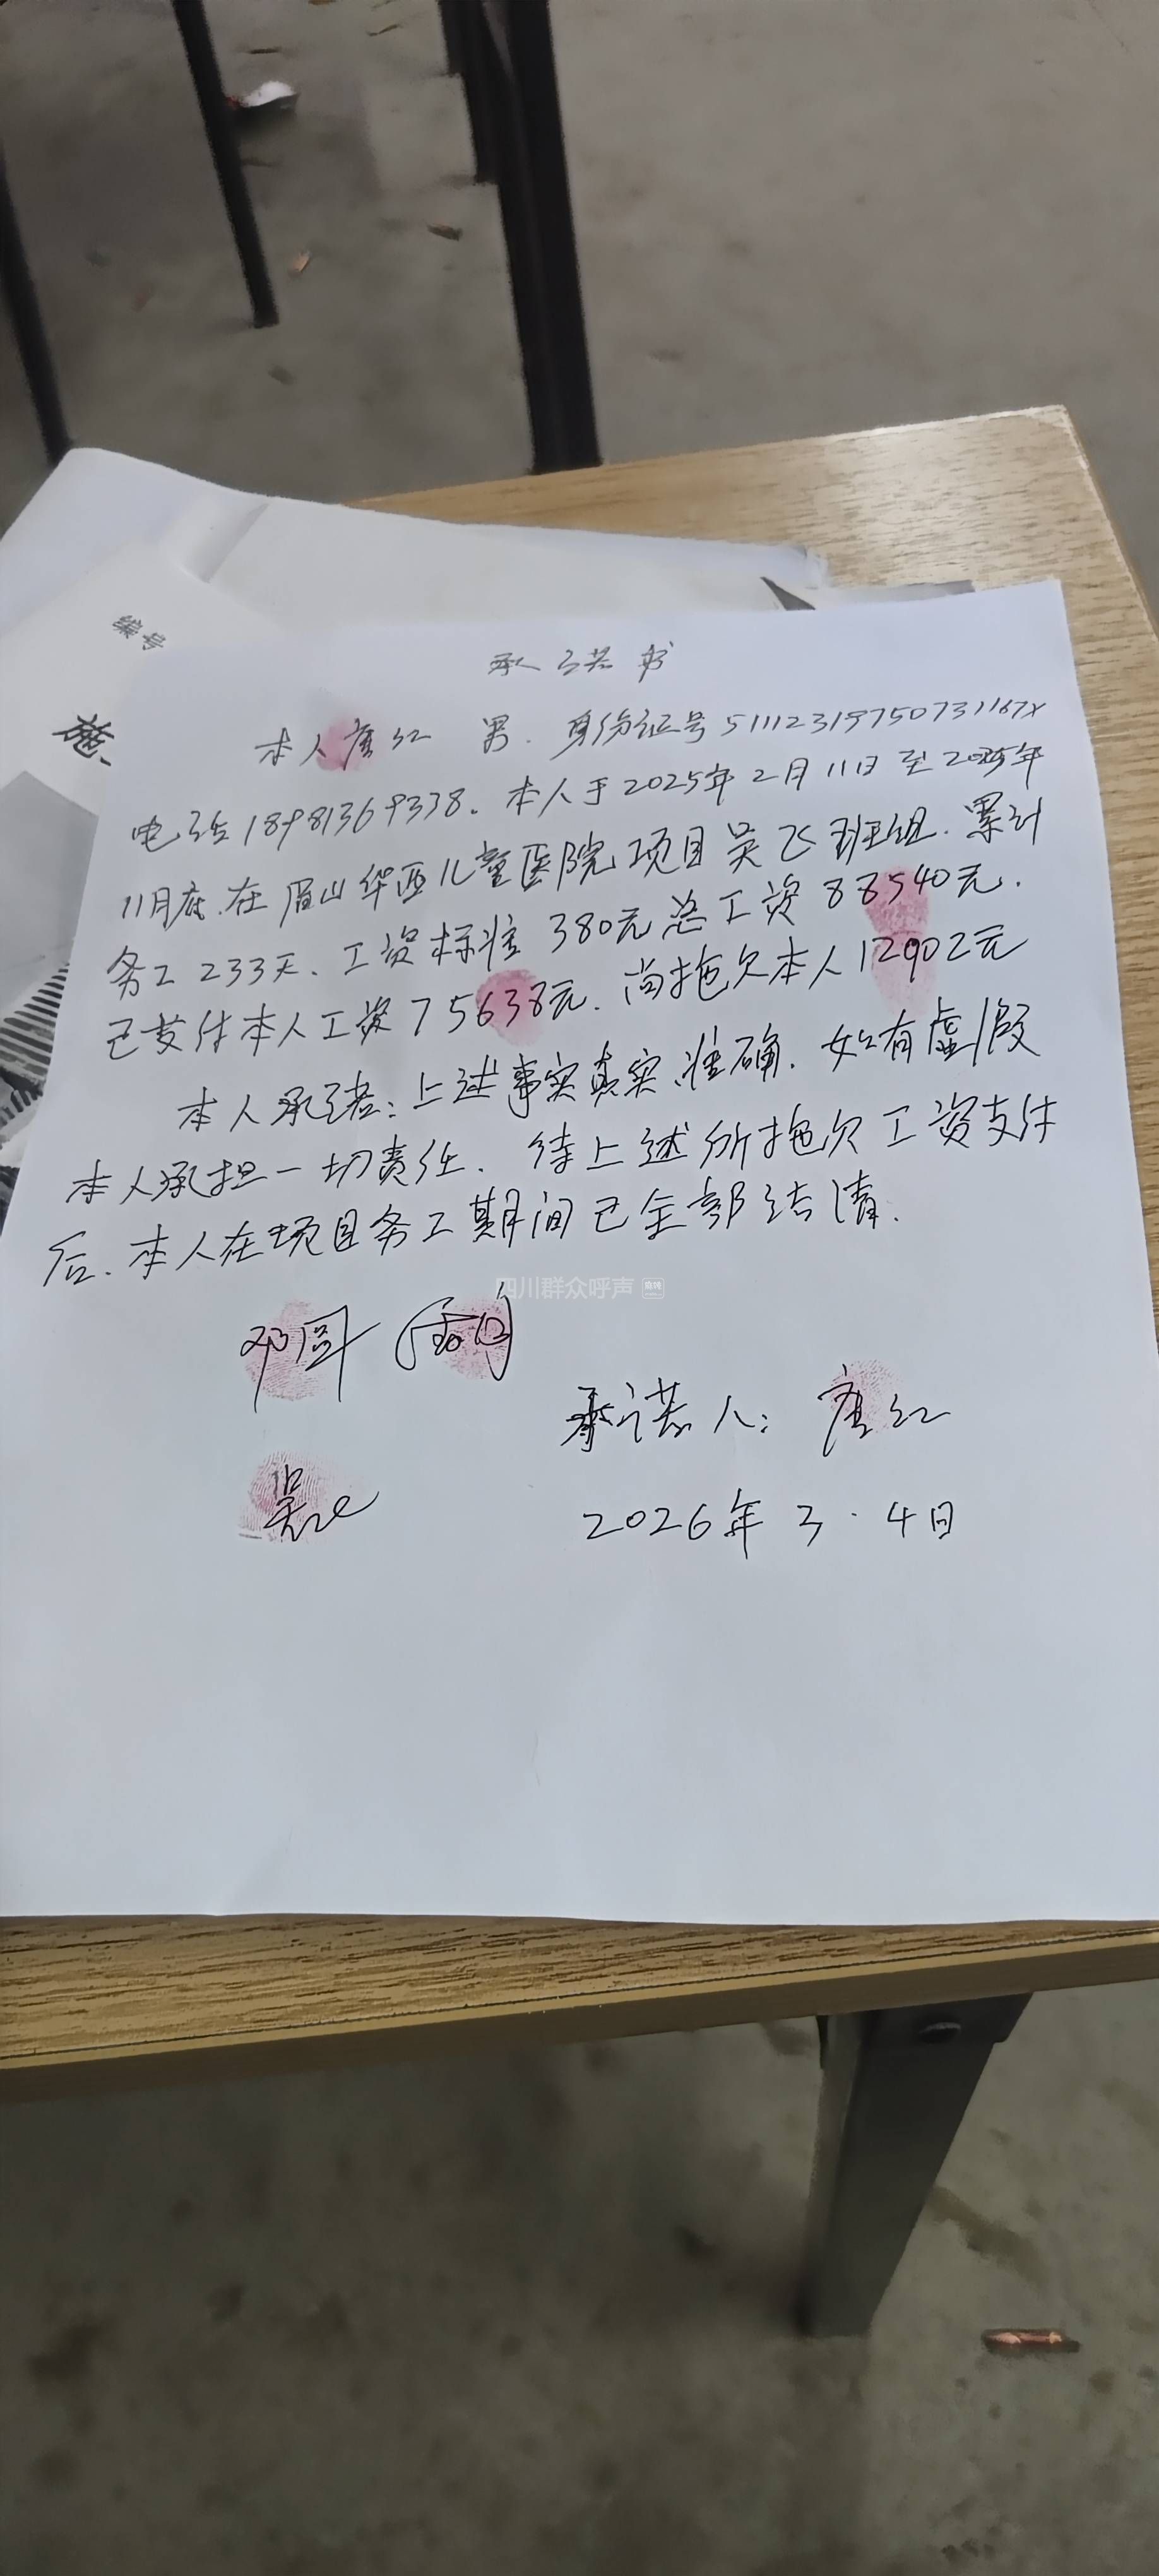 编号
施
承诺书
本人唐红 男. 身份证号51112319750731167X
电话18981369338. 本人于2025年2月11日至2025年
11月底.在眉山华西儿童医院项目吴飞班组.累计
务工233天、工资标准380元总工资88540元.
已支付本人工资75638元.尚拖欠本人12902元
本人承诺:上述事实真实准确.如有虚假
本人承担一切责任.待上述所拖欠工资支付
后.本人在项目务工期间已全部结清.
四川群众呼声
承诺人:唐红
2026年3.4日